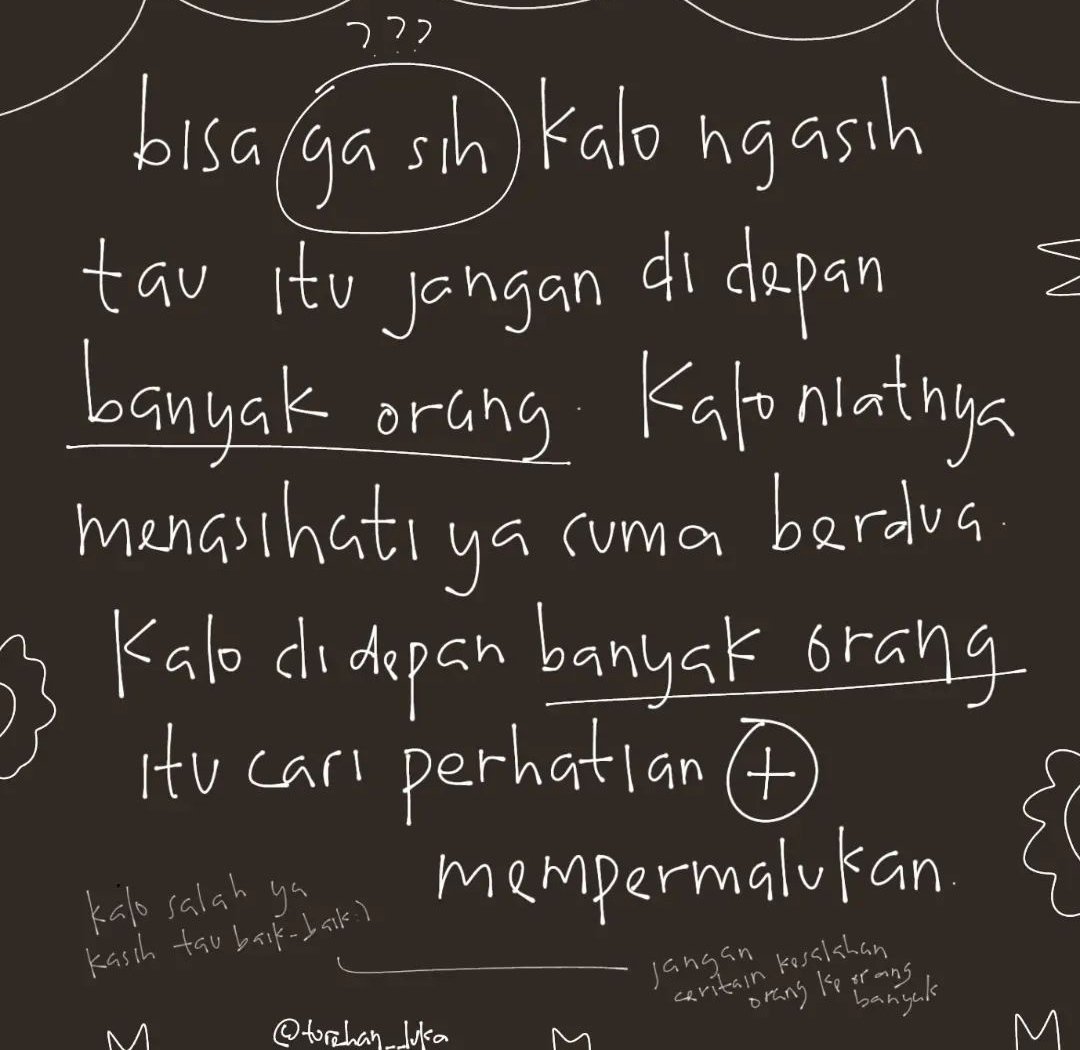 ???
bisa ga sih kalo ngasih
tau itu jangan di depan
banyak orang. Kalo niatnya
menasihati ya cuma berdua.
Kalo di depan banyak orang
itu cari perhatian +
mempermalukan.
kalo salah ya
kasih tau baik-baik:)
jangan
ceritain kesalahan
orang ke orang
banyak
@torehan_luka